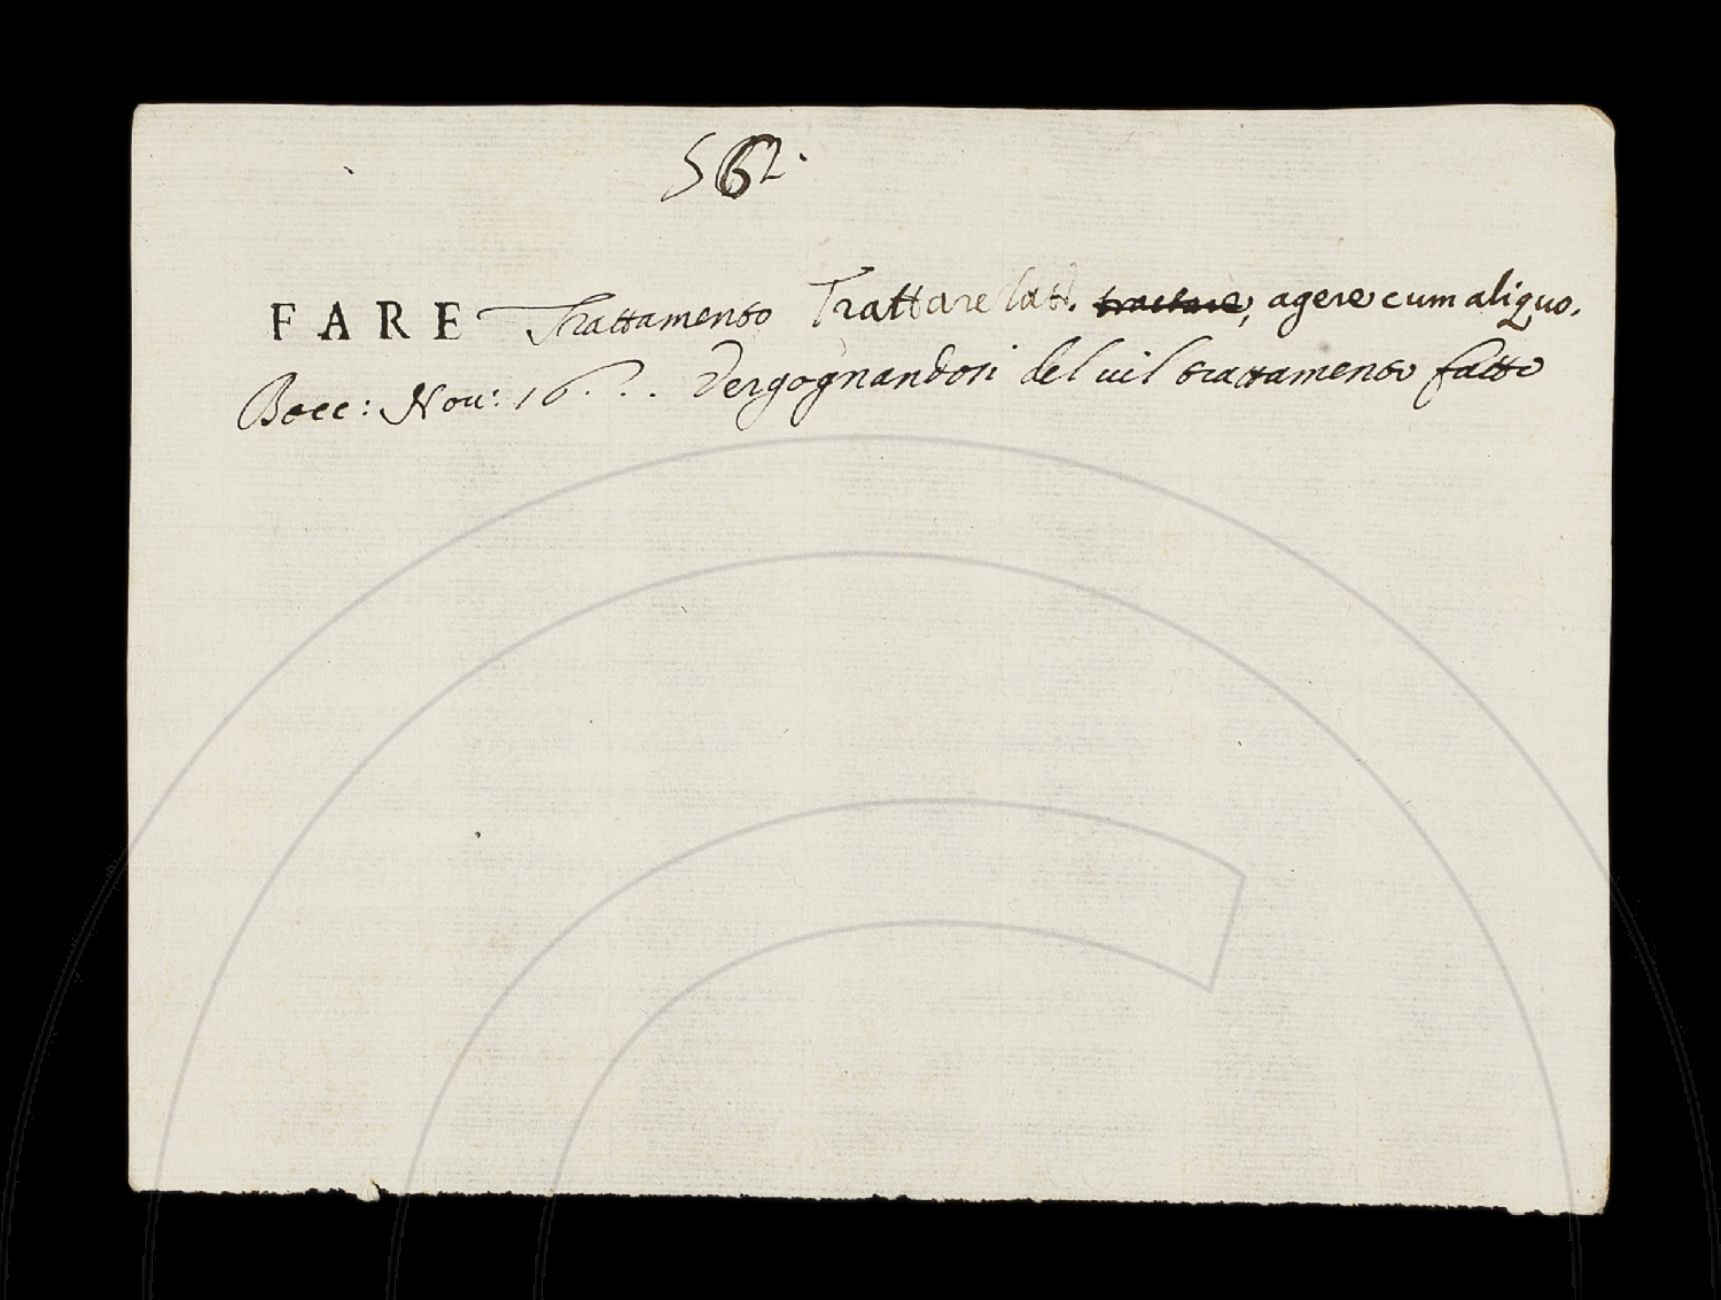 562.
FARE Trattamento Trattare latt. tractare, agere cum aliquo.
Bocc: Nov: 16. . . Vergognandosi del vil trattamento fatto